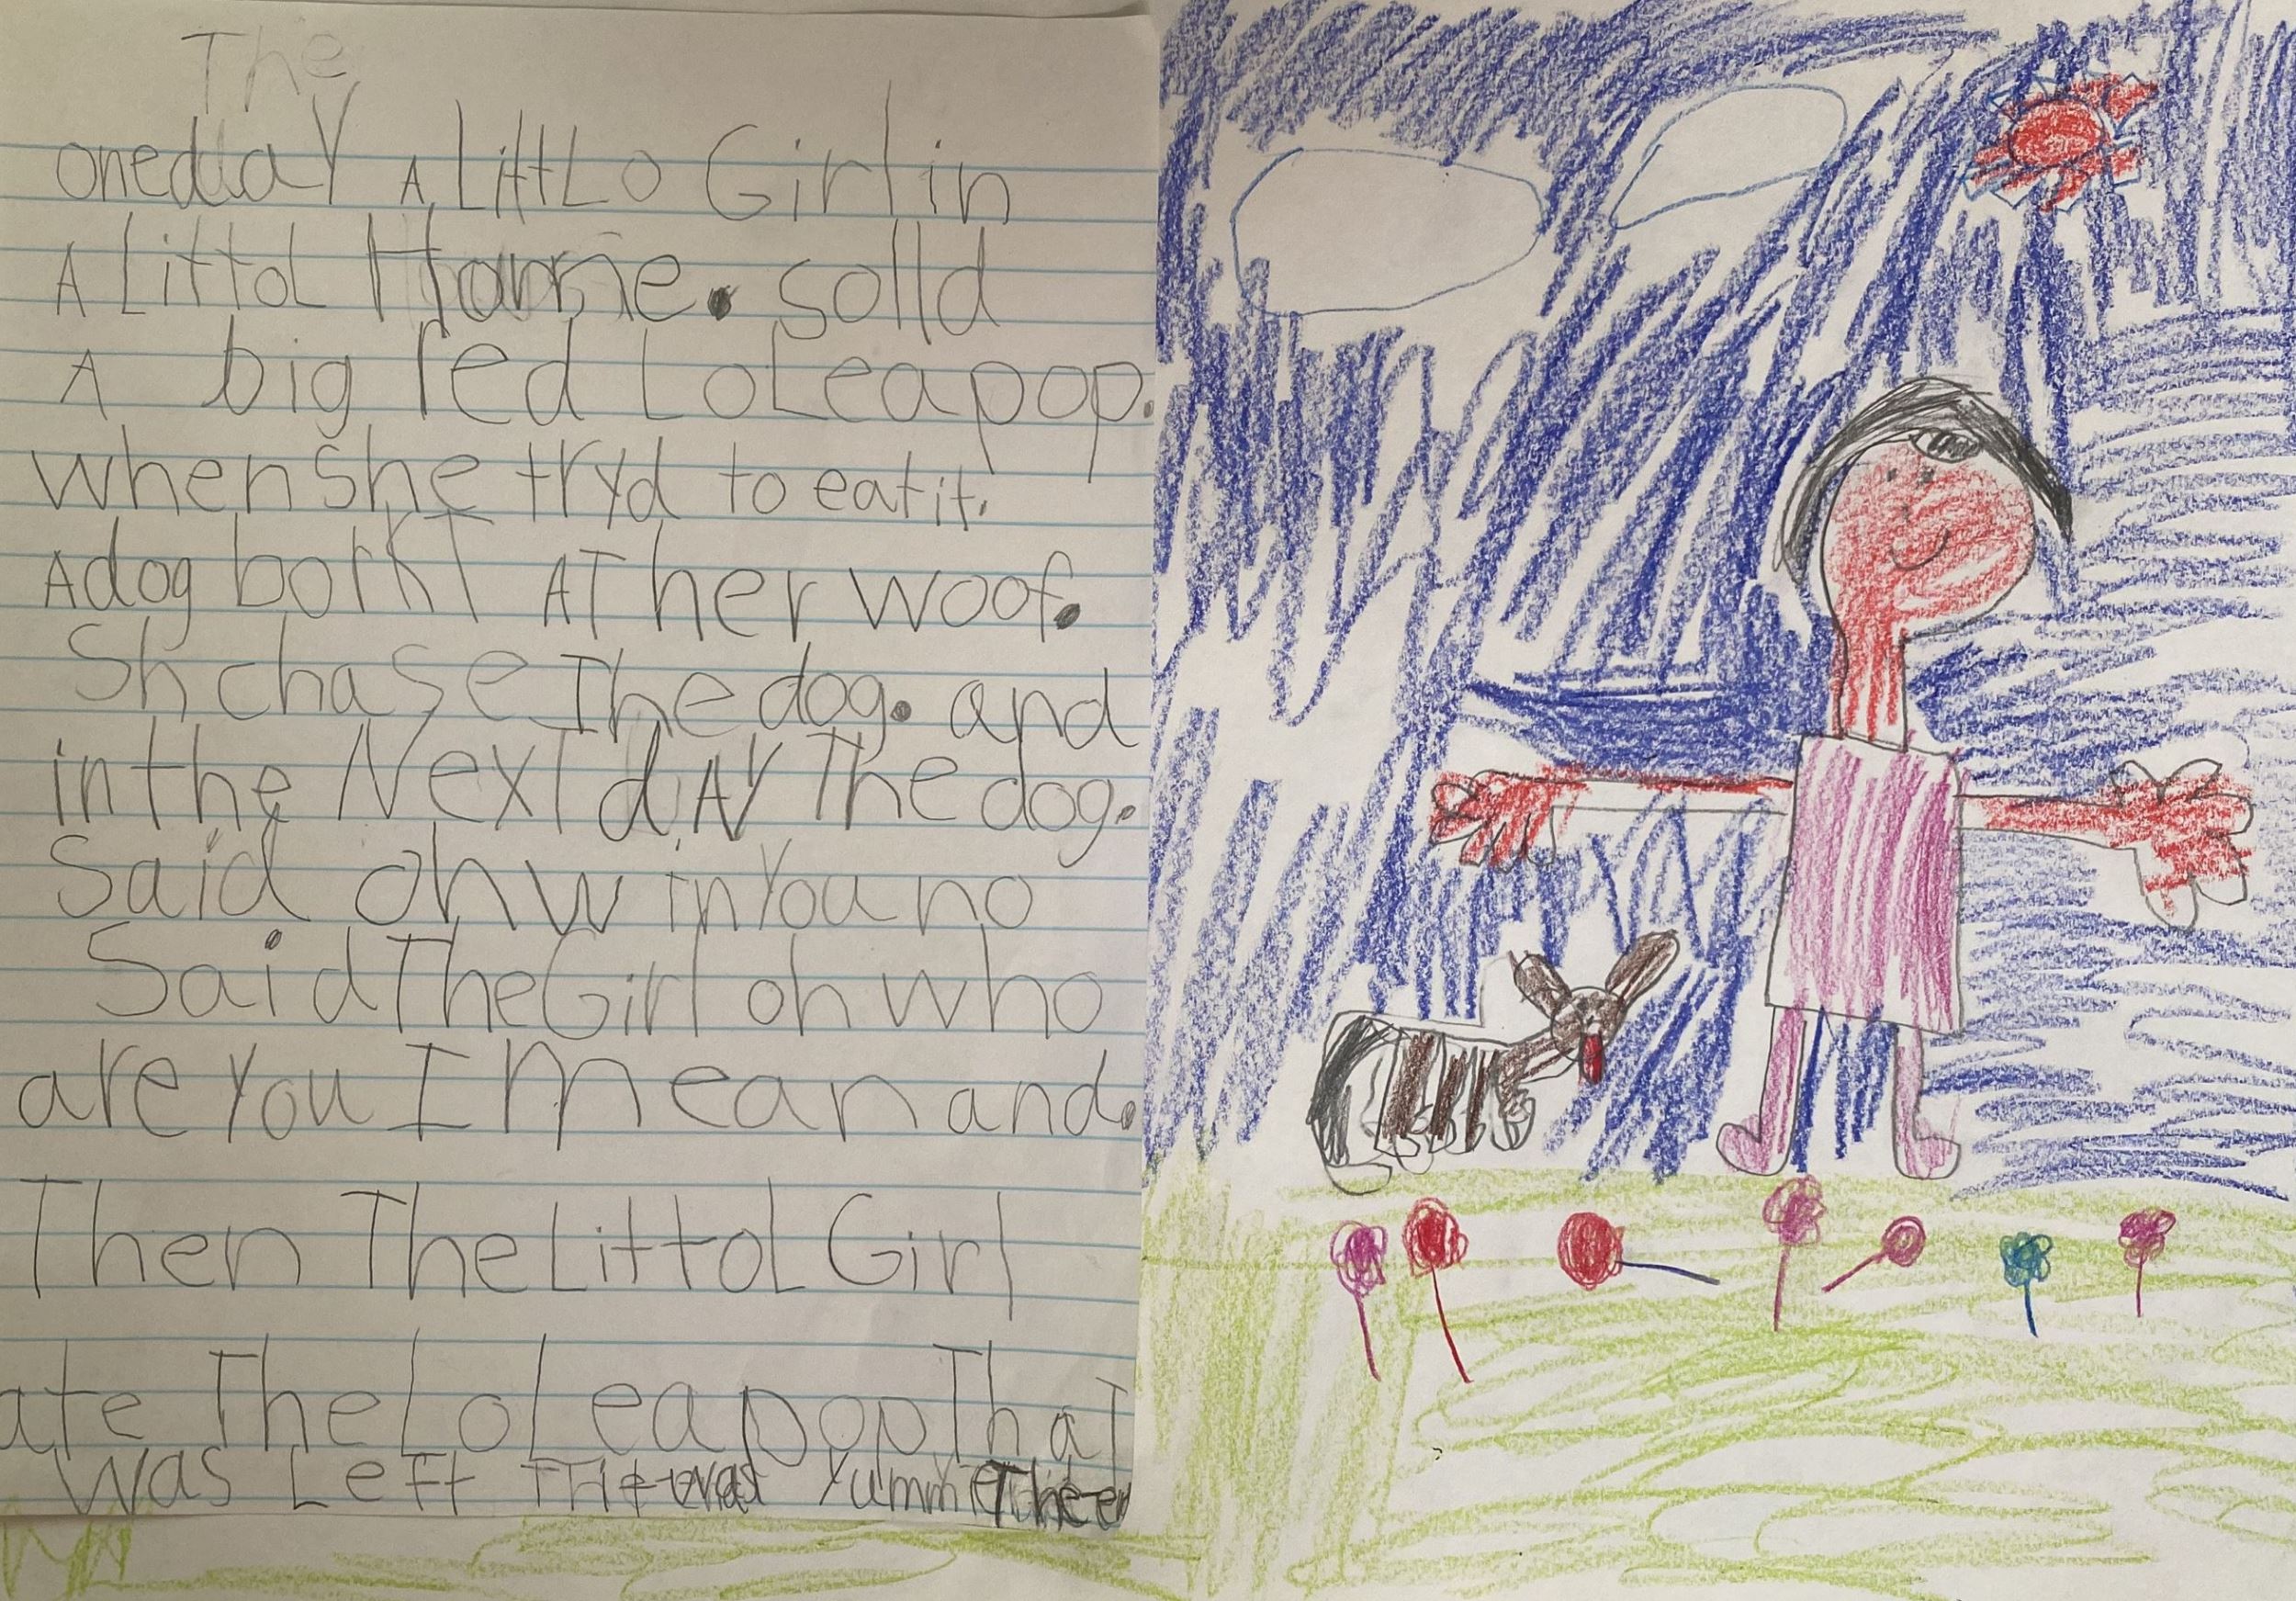 The
oneday A LittLo Girl in
A LittoL Home. solld
A big red LoLeapop.
when she tryd to eat it.
A dog borkT AT her woof.
Sh chase The dog. and
in the NexT dAY The dog.
Said oh w in You no
Said The Girl oh who
are You I mean and.
Then The LittoL Girl
ate The LoLeapop ThaT
was LefT was Yumm